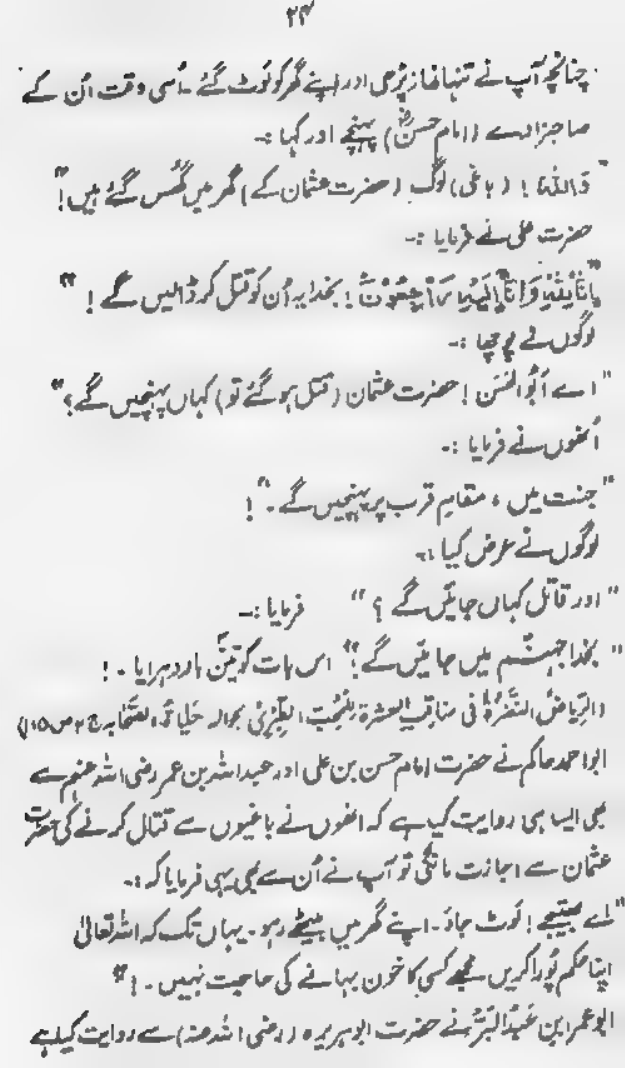 ۲۴
چنانچہ آپ نے تنہا نماز پڑھی اور اپنے گھر کو لوٹ گئے ۔ اُسی وقت اُن کے
صاحبزادے (امام حسنؓ) پہنچے اور کہا :۔
"وَاللّٰہِ ! (باغی) لوگ (حضرت عثمان کے) گھر میں گُھس گئے ہیں!"
حضرت علی نے فرمایا :۔
"اِنَّا لِلّٰہِ وَاِنَّا اِلَیْہِ رَاجِعُوْنَ ! بخدا یہ اُن کو قتل کر ڈالیں گے ! "
لوگوں نے پوچھا :۔
"اے اَبُو الحَسَن ! حضرت عثمان (قتل ہو گئے تو) کہاں پہنچیں گے ؟"
اُنھوں نے فرمایا :۔
"جنت میں ، مقامِ قرب پر پہنچیں گے ۔" !
لوگوں نے عرض کیا :۔
"اور قاتل کہاں جائیں گے ؟" فرمایا :۔
"بخدا جہنّم میں جائیں گے !" اس بات کو تینؔ بار دہرایا ۔ !
(الرِّیاضُ النَّضْرَۃُ فی مناقبِ العشرۃ لِلْمُحِبِّ الطَّبَرْیٰ بحوالہ حَیَاۃُ الصَّحَابہ ج ۲ ص ۱۵)
ابو احمد حاکم نے حضرت امام حسن بن علی اور عبداللہ بن عمر رضی اللہ عنہم سے
بھی ایسا ہی روایت کیا ہے کہ انھوں نے باغیوں سے قتال کرنے کی حضرت
عثمان سے اجازت مانگی تو آپ نے اُن سے بھی یہی فرمایا کہ :۔
"اے بھتیجے ! لَوٹ جاؤ ۔ اپنے گھر میں بیٹھے رہو ۔ یہاں تک کہ اللہ تعالیٰ
اپنا حکم پُورا کریں مجھے کسی کا خون بہانے کی حاجت نہیں ۔ ! "
ابو عمر ابن عَبْدُ البَرّ نے حضرت ابوہریرہ (رضی اللہ عنہ) سے روایت کیا ہے